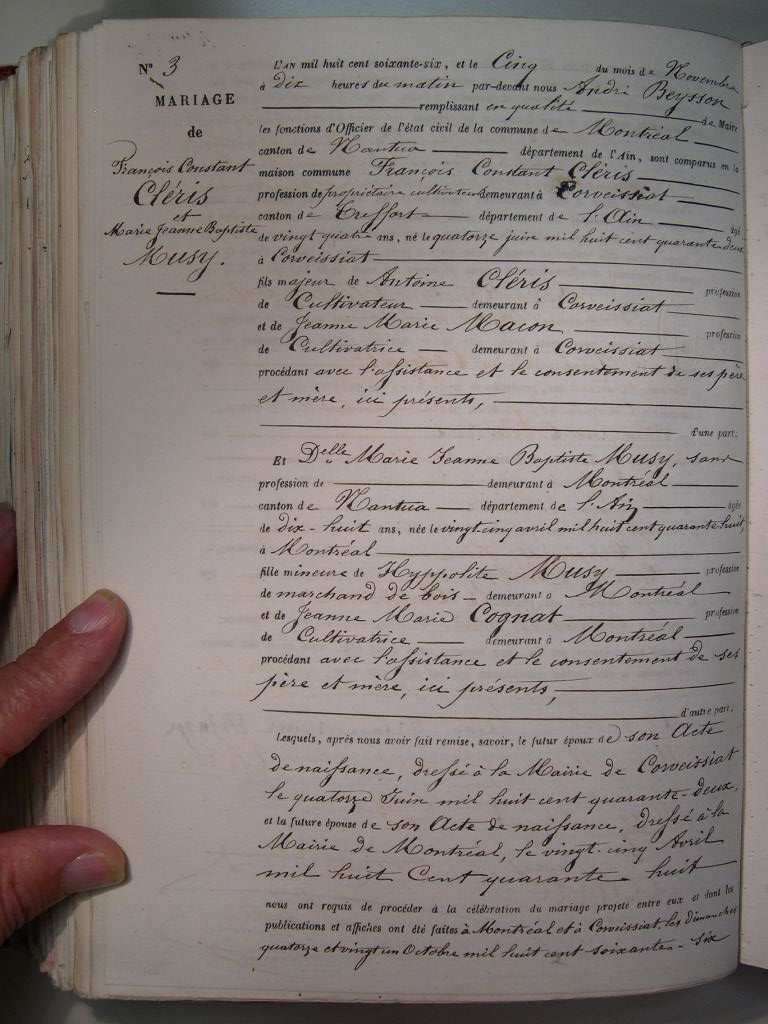 N° 3
MARIAGE
de
François Constant
Cléris
et
Marie Jeanne Baptiste
Musy.
L'AN mil huit cent soixante-six, et le Cinq du mois de Novembre
à dix heures du matin par-devant nous André Beysson
remplissant en qualité de Maire
les fonctions d'Officier de l'état civil de la commune de Montréal
canton de Nantua département de l'Ain, sont comparus en la
maison commune François Constant Cléris
profession de propriétaire cultivateur demeurant à Corveissiat
canton de Treffort département de l'Ain âgé
de vingt quatre ans, né le quatorze juin mil huit cent quarante deux
à Corveissiat
fils majeur de Antoine Cléris profession
de Cultivateur demeurant à Corveissiat
et de Jeanne Marie Macon profession
de Cultivatrice demeurant à Corveissiat
procédant avec l'assistance et le consentement de ses père
et mère, ici présents,
d'une part.
Et Delle Marie Jeanne Baptiste Musy, sans
profession de demeurant à Montréal
canton de Nantua département de l'Ain âgée
de dix-huit ans, née le vingt-cinq avril mil huit cent quarante huit,
à Montréal
fille mineure de Hyppolite Musy profession
de marchand de bois demeurant à Montréal
et de Jeanne Marie Cognat profession
de Cultivatrice demeurant à Montréal
procédant avec l'assistance et le consentement de ses
père et mère, ici présents,
d'autre part.
Lesquels, après nous avoir fait remise, savoir, le futur époux de son Acte
de naissance, dressé à la Mairie de Corveissiat
le quatorze Juin mil huit cent quarante-deux,
et la future épouse de son Acte de naissance, dressé à la
Mairie de Montréal, le vingt-cinq Avril
mil huit Cent quarante huit
nous ont requis de procéder à la célébration du mariage projeté entre eux et dont les
publications et affiches ont été faites à Montréal et à Corveissiat, les dimanches
quatorze et vingt un Octobre mil huit cent soixante-six